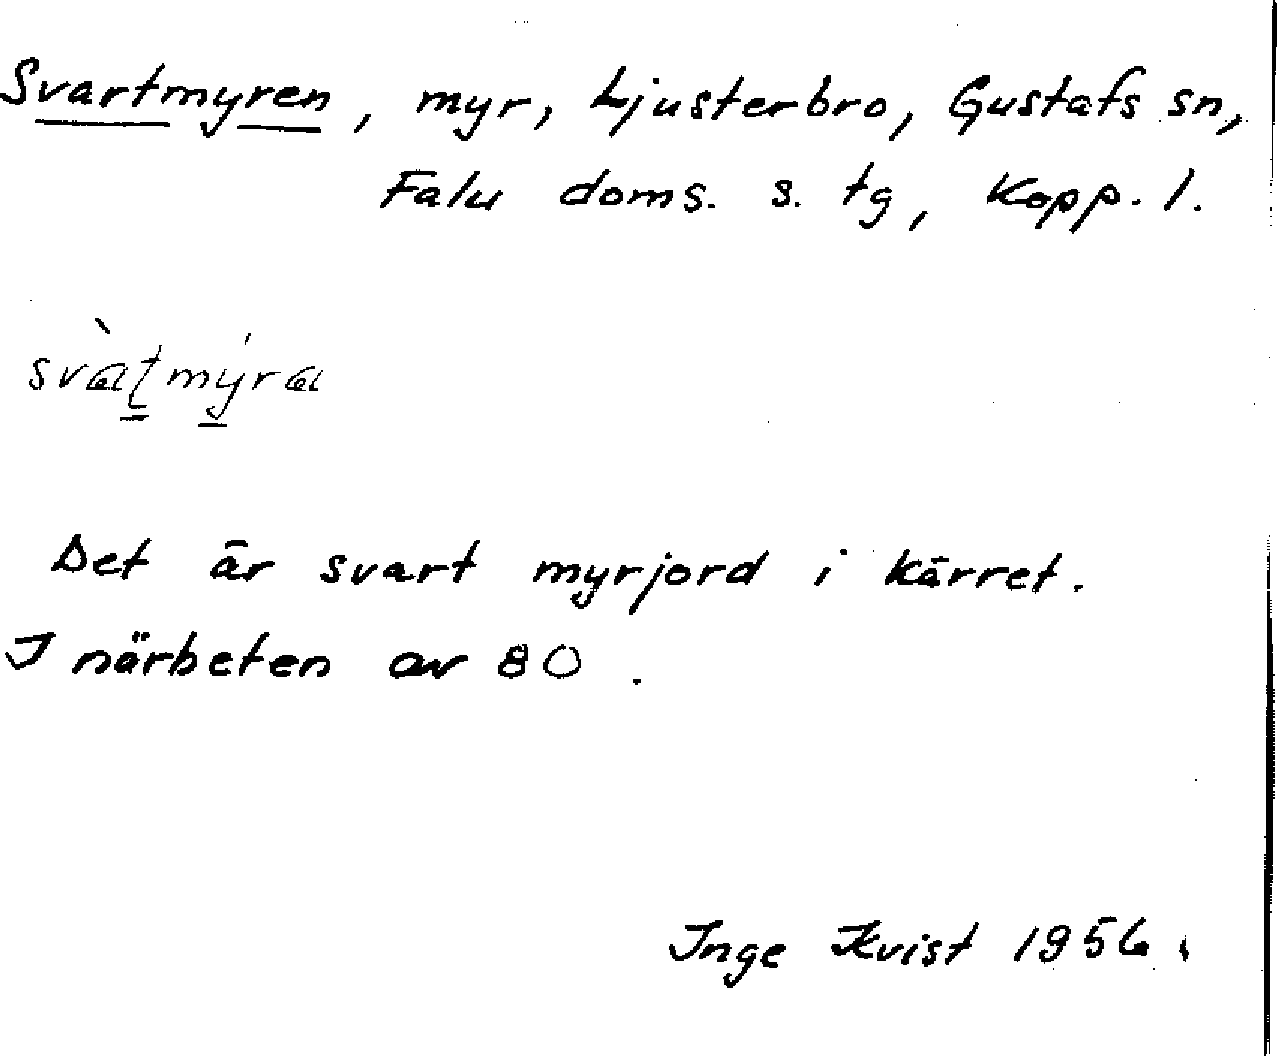 Svartmyren, myr, Ljusterbro, Gustafs sn,
Falu doms. s. tg, Kopp. l.
svàṯmý̱ra
Det är svart myrjord i kärret.
I närbeten av 80.
Inge Kvist 1956.